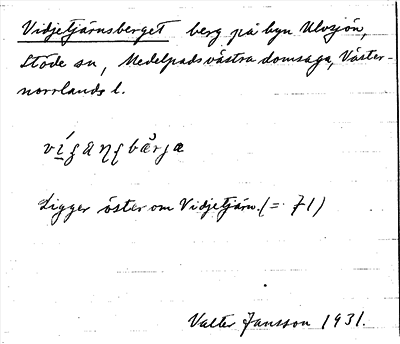 Vidjetjärnsberget berg på byn Ulvsjön,
Stöde sn, Medelpads västra domsaga, Väster-
norrlands l.
Ligger öster om Vidjetjärn. (= 71)
Valter Jansson 1931.